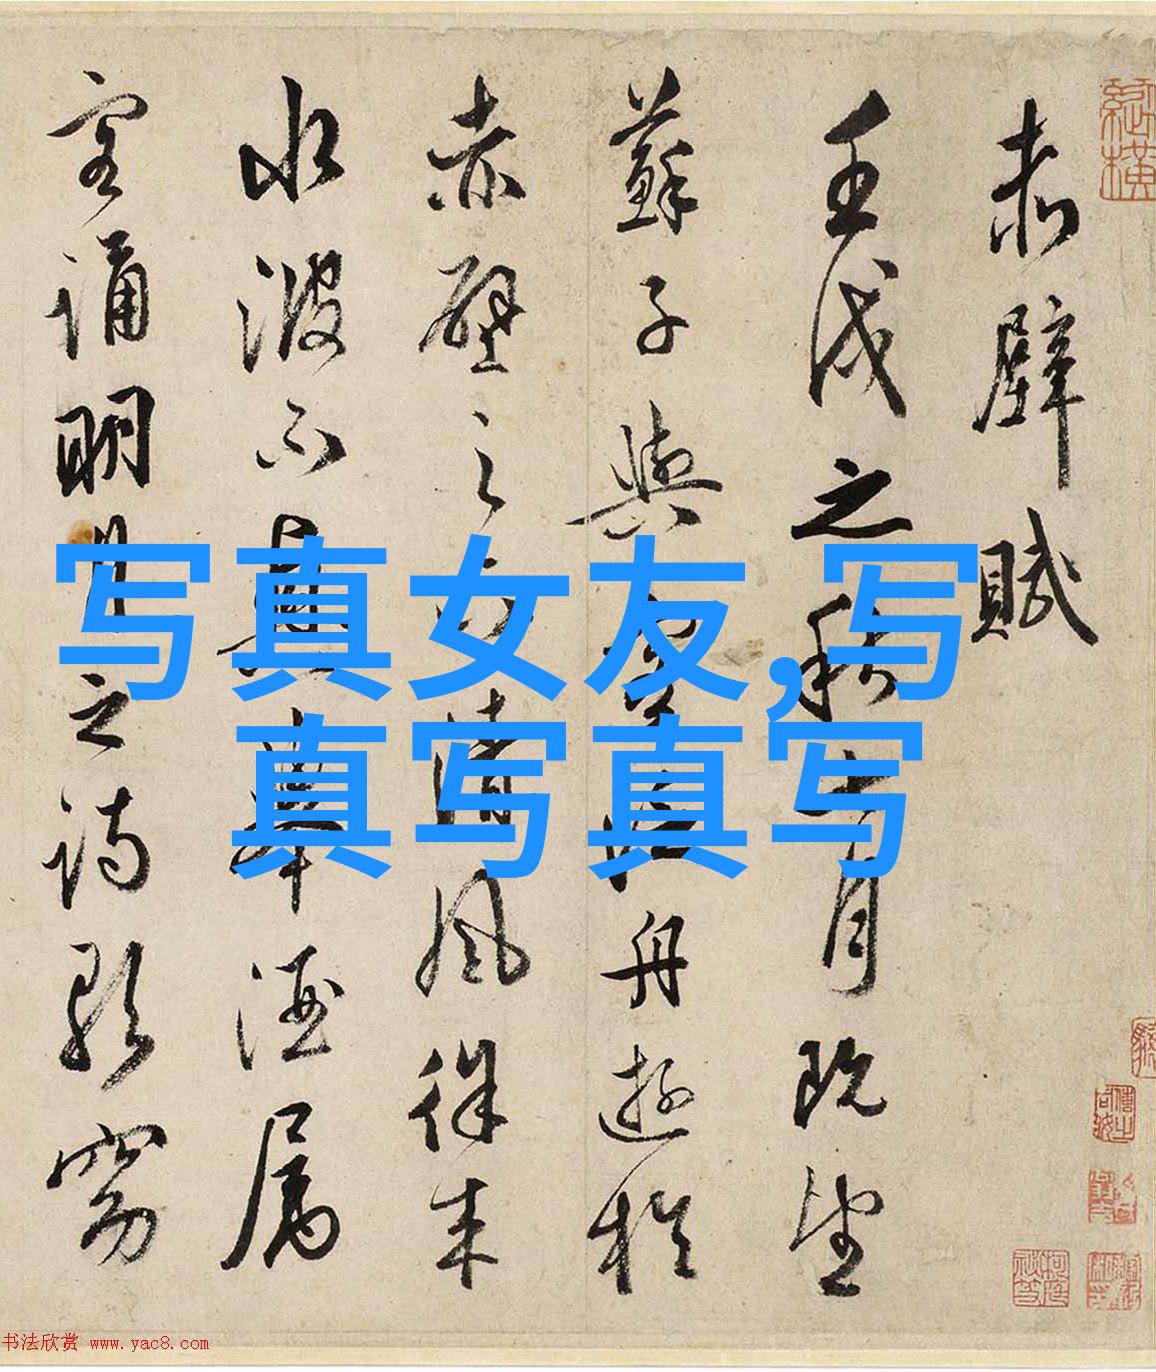 赤壁賦
壬戌之秋七月既望
蘇子與客泛舟遊於
赤壁之下清風徐来
水波不興舉酒属
客誦明月之詩歌窈
写真女友,写
真写真写
书法欣赏 www.yac8.com